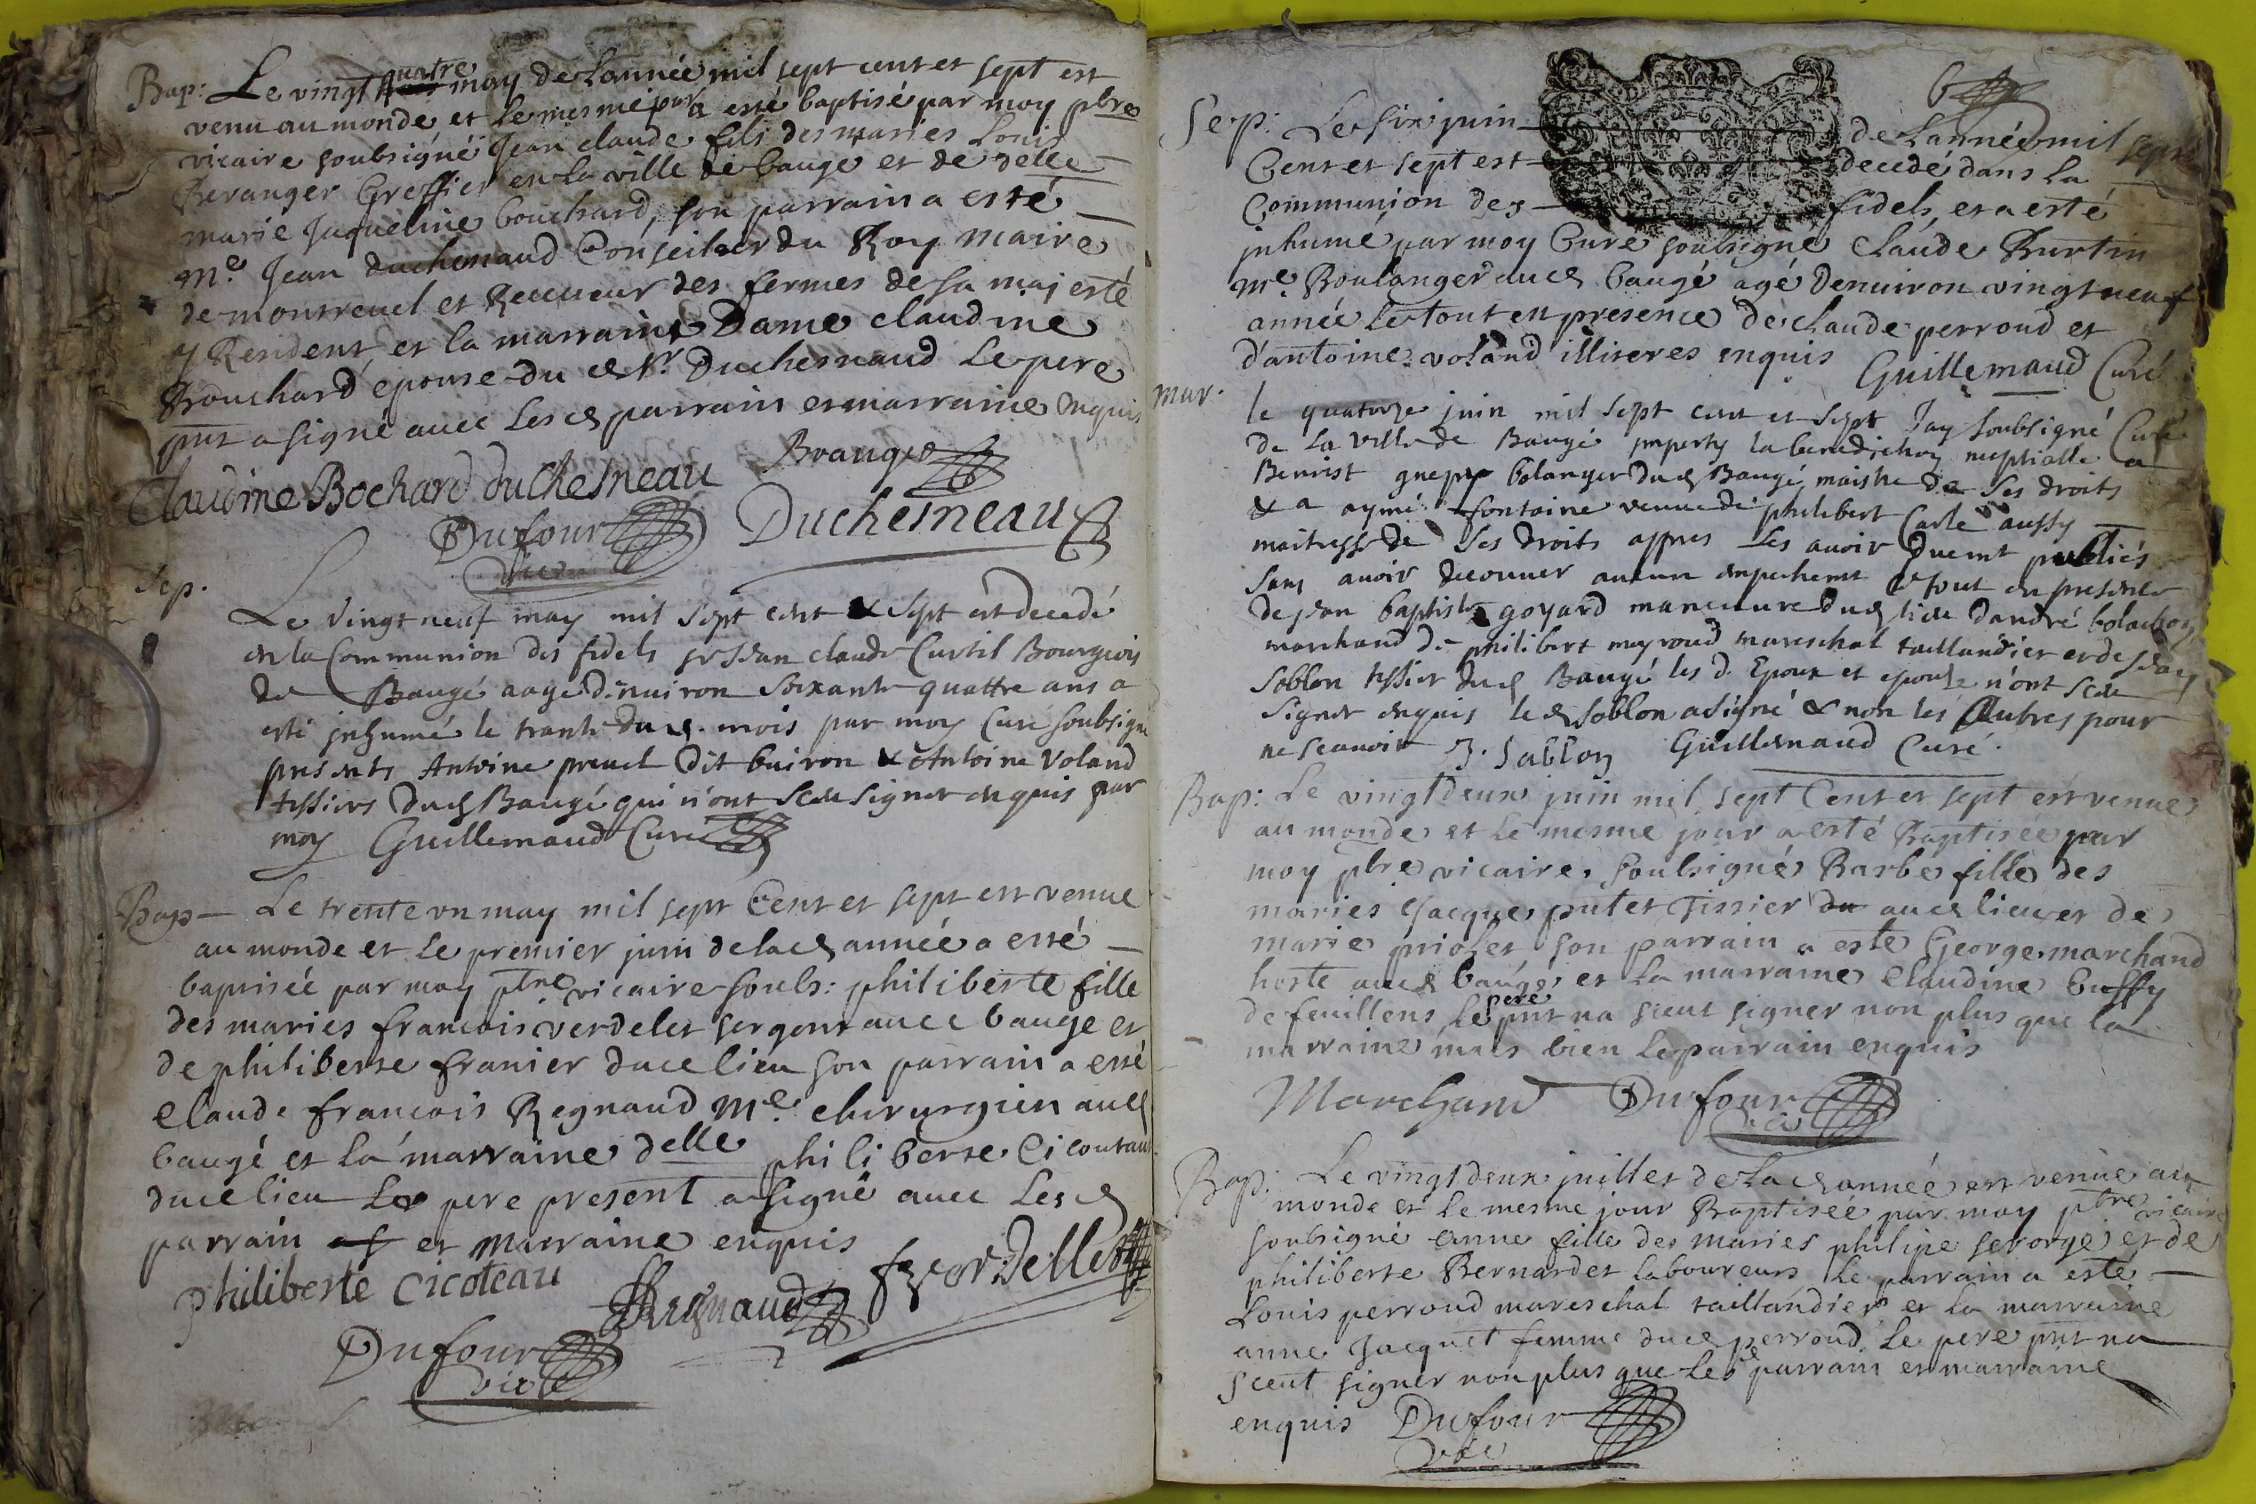 Bap: Le vingt quatre may de Lannée mil sept cent et sept est
venu au monde et le mesme jour a esté baptisé par moy pbre
vicaire soubsigné Jean claude fils des maries Louis
Beranger Greffier en la ville de bauge et de delle
marie Jaqueline bouchard, son parrain a esté
Me. Jean duchenaud Conseiller du Roy maire
de montreuel et Receueur des fermes de sa majesté
y Resident et la marraine Dame claudine
Bouchard epouse du d Sr. Duchesnaud Le pere
pnt a signé auec Les d parrain et marraine enquis
Claudine Bochard duchesneau
Dufour Duchesneau
vic
Sep.
Le vingt neuf may mil sept cent & sept est decedé
en la Communion des fidels sr Jean claude Curtil Bourgeois
de Baugé aagé denuiron soixante quattre ans a
esté inhumé le trante dud. mois par moy Curé soubsigné
presents Antoine preuel dit buiron & Antoine Voland
tissiers dud Baugé qui n'ont sceu signer enquis par
moy Guillemaud Curé
Bap – Le trente vn may mil sept Cent et sept est venue
au monde et le premier juin de lad année a esté
baptisée par moy ptre vicaire soubs: philiberte fille
des maries francois verdelet sergent auce bauge et
de philiberte franier duce lieu son parrain a esté
claude francois Regnaud Me. chirurgien aud
baugé et la marraine delle philiberte Cicoutaud
ducelieu Le pere present a signé auec Les d
parrain et marraine enquis
philiberte cicoteau Regnaud f verdellet
Dufour
vic
Sep: Le six juin de Lannée mil sept
Cent et sept est decedé dans la
Communion des fidels, et a esté
inhumé par moy Cure soubsigné Claude Burtin
Me. Boulanger aud baugé agé denuiron vingt neuf
année Le tout en presence de claude perroud et
d'antoine voland illiteres enquis Guillemaud Curé
mar. le quatorze juin mil sept cent et sept Jay soubsigné Curé
de la Ville de Baugé imperty la benediction nuptialle a
Benoist bolanger dud Baugé maistre de ses droits
& a aymé fontaine veuue de philibert Carle aussy
maitresse de ses droits appres les auoir duemt publiés
sans auoir decouuer aucun empechemt le tout en presence
de jean baptiste goyard manceuure dud lieu dandré
marchand de philibert mayroud mareschal taillandier et de
Soblon tissier dud Baugé les d. Epoux et epouse n'ont sceu
signer enquis le d Soblon a signé & non les Autres pour
ne scauoir J. Sablon Guillemaud Curé.
Bap: Le vingt deux juin mil sept Cent et sept est venue
au monde et le mesme jour a esté Baptisée par
moy pbre vicaire soubsigné Barbe fille des
maries Jacques putet Tissier du aud lieu et de
marie priolet, son parrain a este George marchand
hoste aud baugé et la marraine Claudine buffy
de feuillens, Le pere pnt na sceut signer non plus que la
marraine mais bien le parrain enquis
Marchand Dufour
vic
Bap: Le vingt deux juillet de la d année est venue au
monde et le mesme jour Baptisée par moy ptre vicaire
soubsigné anne fille des maries philipe et de
philiberte Bernardet laboureurs Le parrain a este
Louis perroud mareschal taillandier et la marraine
anne Jacquet femme dud perroud, Le pere pnt na
sceut signer non plus que Les parrain et marraine
enquis Dufour
vic